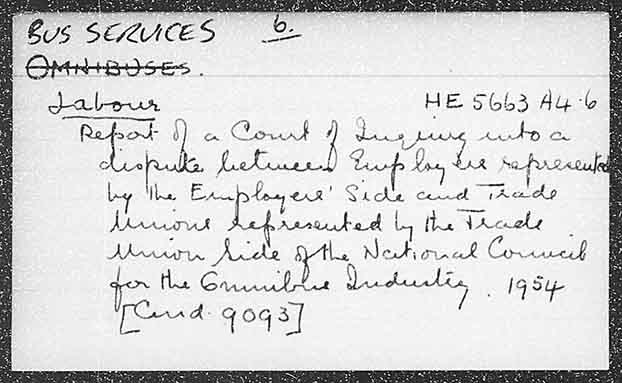 BUS SERVICES 6.
OMNIBUSES.
Labour HE 5663 A4.6
Report of a Court of Inquiry into a
dispute between Employers represented
by the Employers' Side and Trade
Unions represented by the Trade
Union Side of the National Council
for the Omnibus Industry. 1954
[Cmd. 9093]